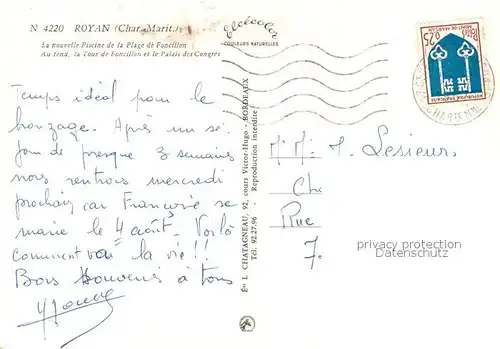 N 4220 ROYAN (Char.-Marit.)
La nouvelle Piscine de la Plage de Foncillon
Au fond, la Tour de Foncillon et le Palais des Congrès
Elcécolor
COULEURS NATURELLES
0,25
MONT-DE-MARSAN
REPUBLIQUE FRANCAISE
Temps idéal pour le
bronzage. Après un sé
jour de presque 3 semaines
nous rentrons mercredi
prochain car Francoise se
marie le 4 août. Voilà
comment va la vie !!
Bons Souvenirs à tous
Éts L. CHATAGNEAU, 92, cours Victor-Hugo - BORDEAUX
Tél. 92.27.96 Reproduction interdite
M. M. J. Lesieur
Che
Rue
7.
privacy protection
Datenschutz